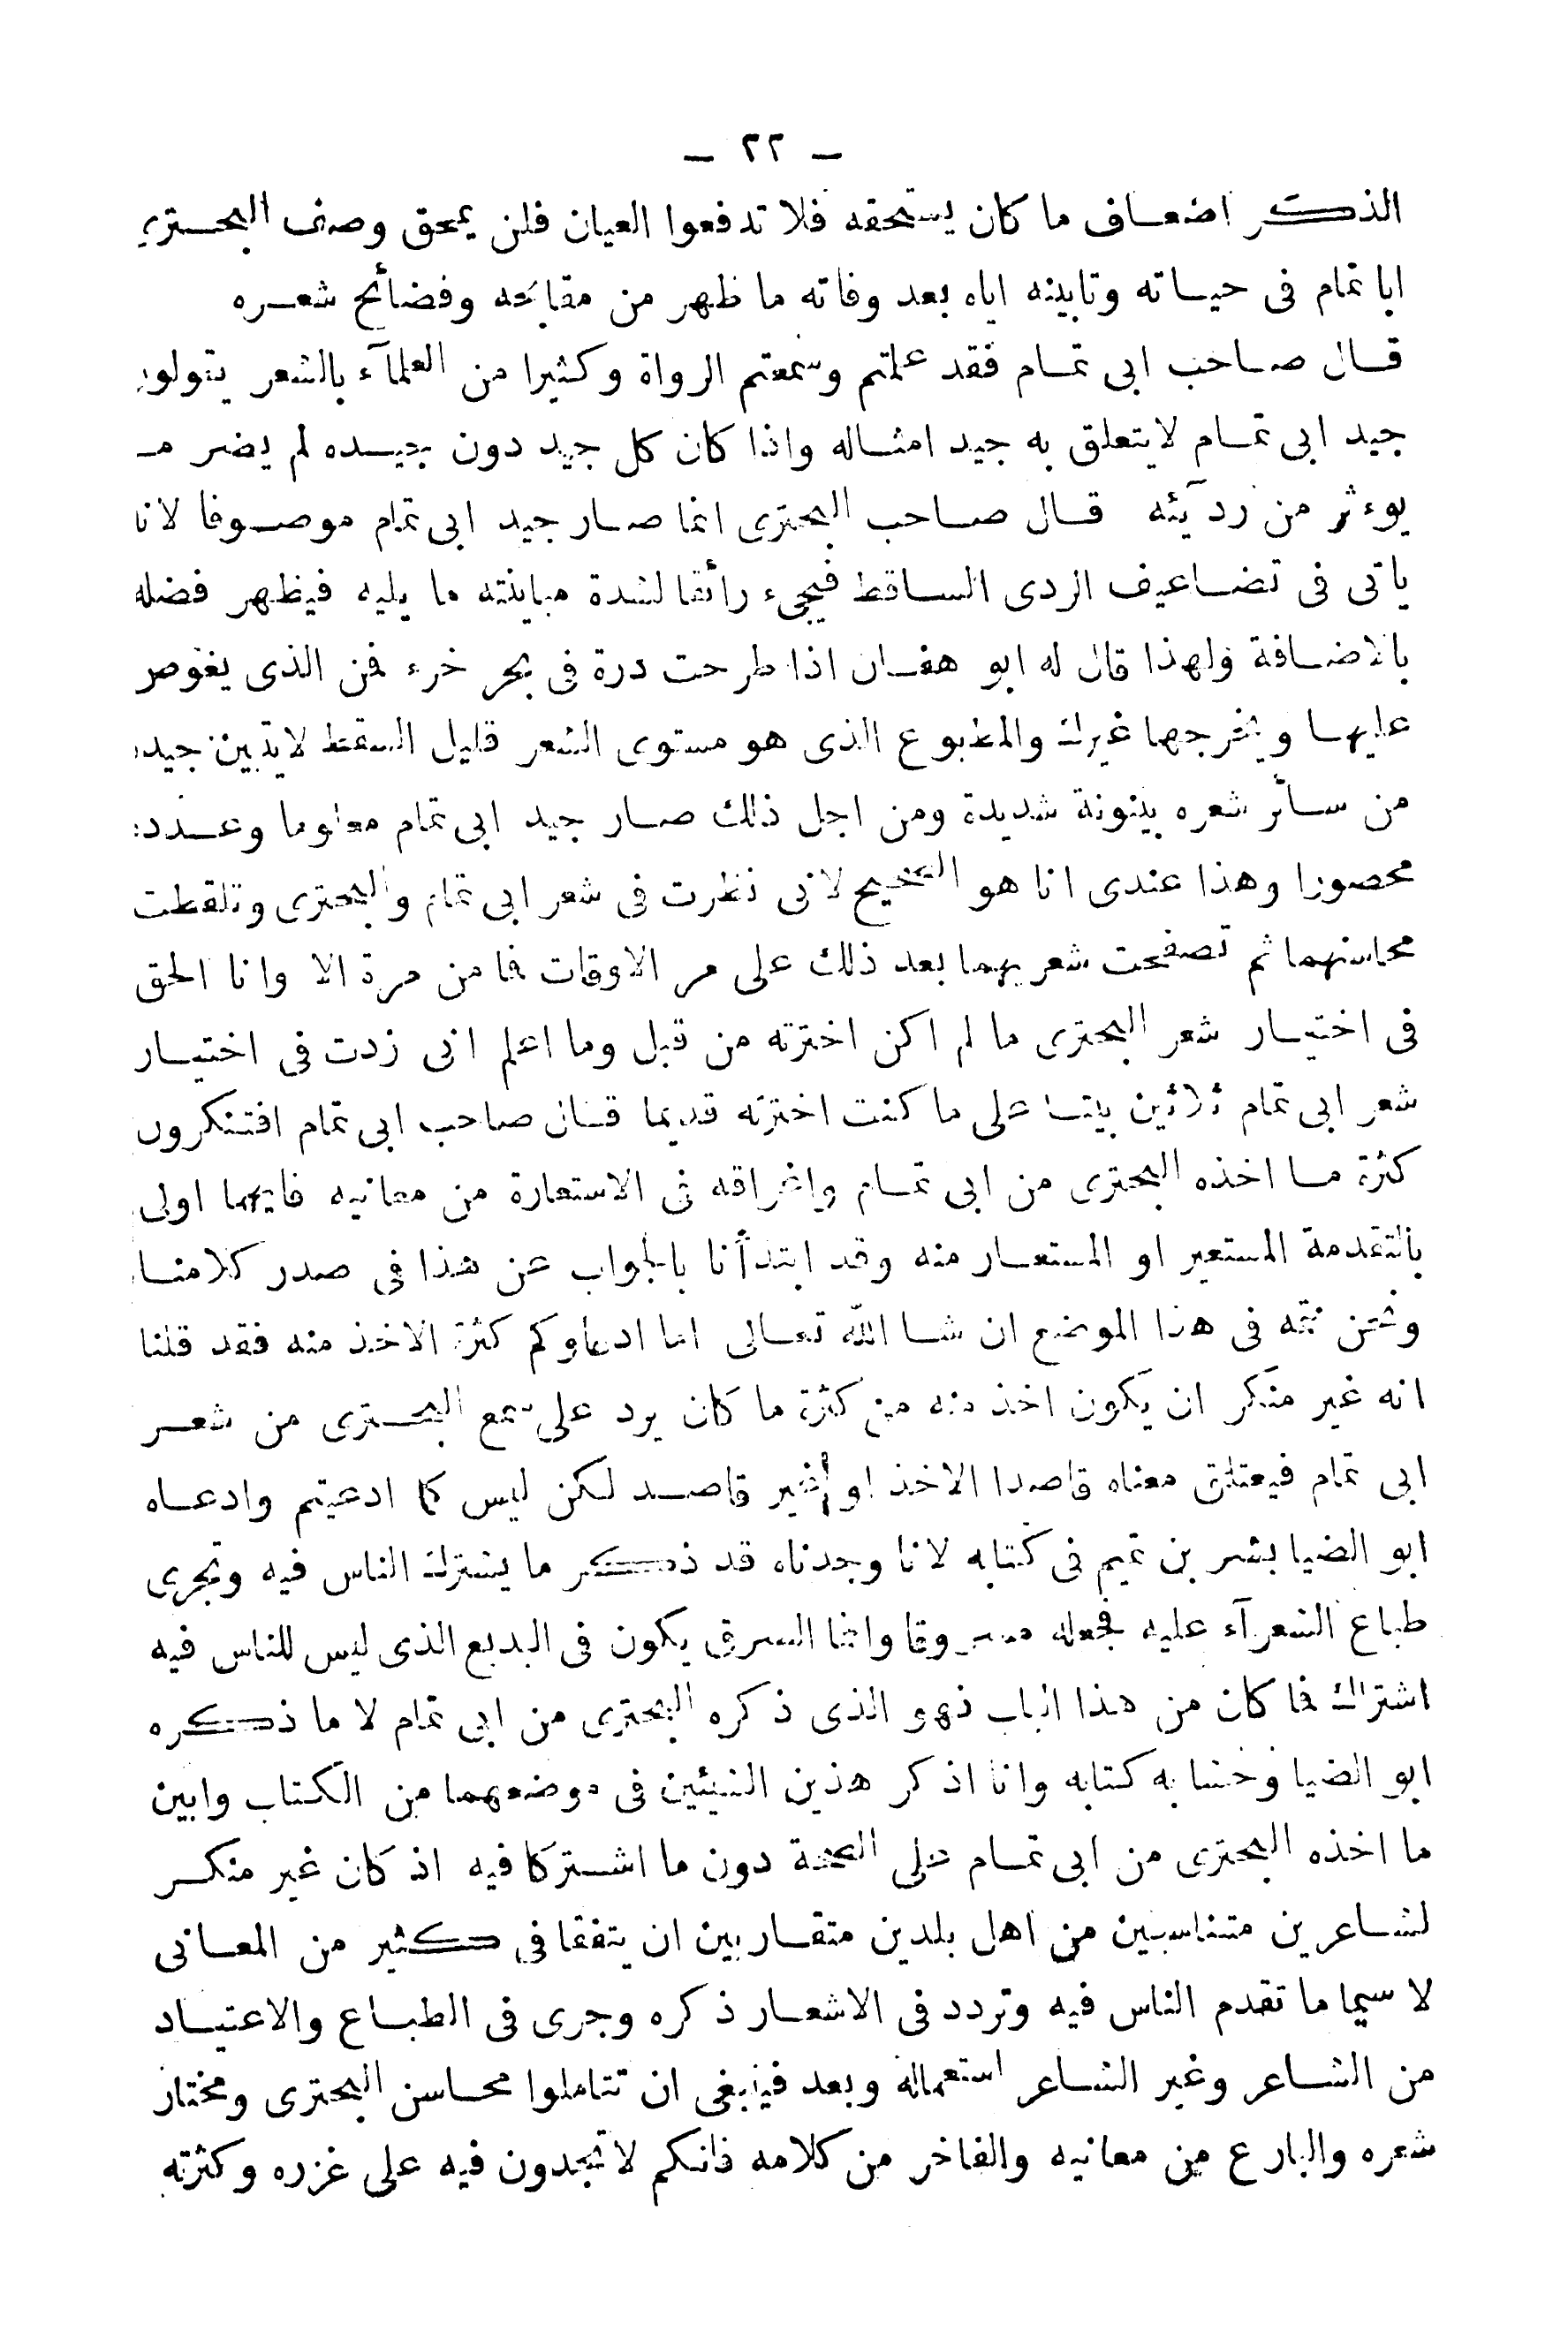 — ٢٢ —
الذكر اضعاف ما كان يستحقه فلا تدفعوا العيان فلن يمحق وصف البحتري
ابا تمام فى حياته وتابينه اياه بعد وفاته ما ظهر من مقابحه وفضائح شعره
قال صاحب ابى تمام فقد علمتم وسمعتم الرواة وكثيرا من العلمآء بالشعر يقولون
جيد ابى تمام لايتعلق به جيد امثاله واذا كان كل جيد دون جيده لم يضر مـ
يوءثر من رديئه قال صاحب البحترى انما صار جيد ابى تمام موصوفا لانا
ياتى فى تضاعيف الردى الساقط فيجىء رائقا لشدة مباينته ما يليه فيظهر فضله
بالاضافة ولهذا قال له ابو هفان اذا طرحت درة فى بحر خرء فمن الذى يغوص
عليها ويخرجها غيرك والمطبوع الذى هو مستوى الشعر قليل السقط لايتبين جيده
من سائر شعره بينونة شديدة ومن اجل ذلك صار جيد ابى تمام معلوما وعدده
محصورا وهذا عندى انا هو الصحيح لانى نظرت فى شعر ابى تمام والبحترى وتلقطت
محاسنهما ثم تصفحت شعريهما بعد ذلك على مر الاوقات فما من مرة الا وانا الحق
فى اختيار شعر البحترى ما لم اكن اخترته من قبل وما اعلم انى زدت فى اختيار
شعر ابى تمام ثلاثين بيتا على ما كنت اخترته قديما قال صاحب ابى تمام افتنكرون
كثرة ما اخذه البحترى من ابى تمام واغراقه فى الاستعارة من معانيه فايهما اولى
بالتقدمة المستعير او المستعار منه وقد ابتدأنا بالجواب عن هذا فى صدر كلامنا
ونحن نتمه فى هذا الموضع ان شا الله تعالى اما ادعاوكم كثرة الاخذ منه فقد قلنا
انه غير منكر ان يكون اخذ منه من كثرة ما كان يرد على سمع البحترى من شعر
ابى تمام فيعتلق معناه قاصدا الاخذ او غير قاصد لكن ليس كما ادعيتم وادعاه
ابو الضيا بشر بن تميم فى كتابه لانا وجدناه قد ذكر ما يشترك الناس فيه وتجرى
طباع الشعرآء عليه فجعله مسروقا وانما السرق يكون فى البديع الذى ليس للناس فيه
اشتراك فما كان من هذا الباب فهو الذى ذكره البحترى من ابى تمام لا ما ذكره
ابو الضيا وحشا به كتابه وانا اذكر هذين الشيئين فى موضعهما من الكتاب وابين
ما اخذه البحترى من ابى تمام على الصحة دون ما اشتركا فيه اذ كان غير منكر
لشاعرين متناسبين من اهل بلدين متقاربين ان يتفقا فى كثير من المعانى
لا سيما ما تقدم الناس فيه وتردد فى الاشعار ذكره وجرى فى الطباع والاعتياد
من الشاعر وغير الشاعر استعماله وبعد فينبغى ان تتاملوا محاسن البحترى ومختار
شعره والبارع من معانيه والفاخر من كلامه فانكم لا تجدون فيه على غزره وكثرته